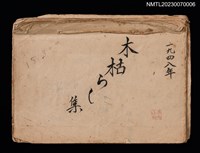 NMTL20230070006
一九四八年
木枯らし
集